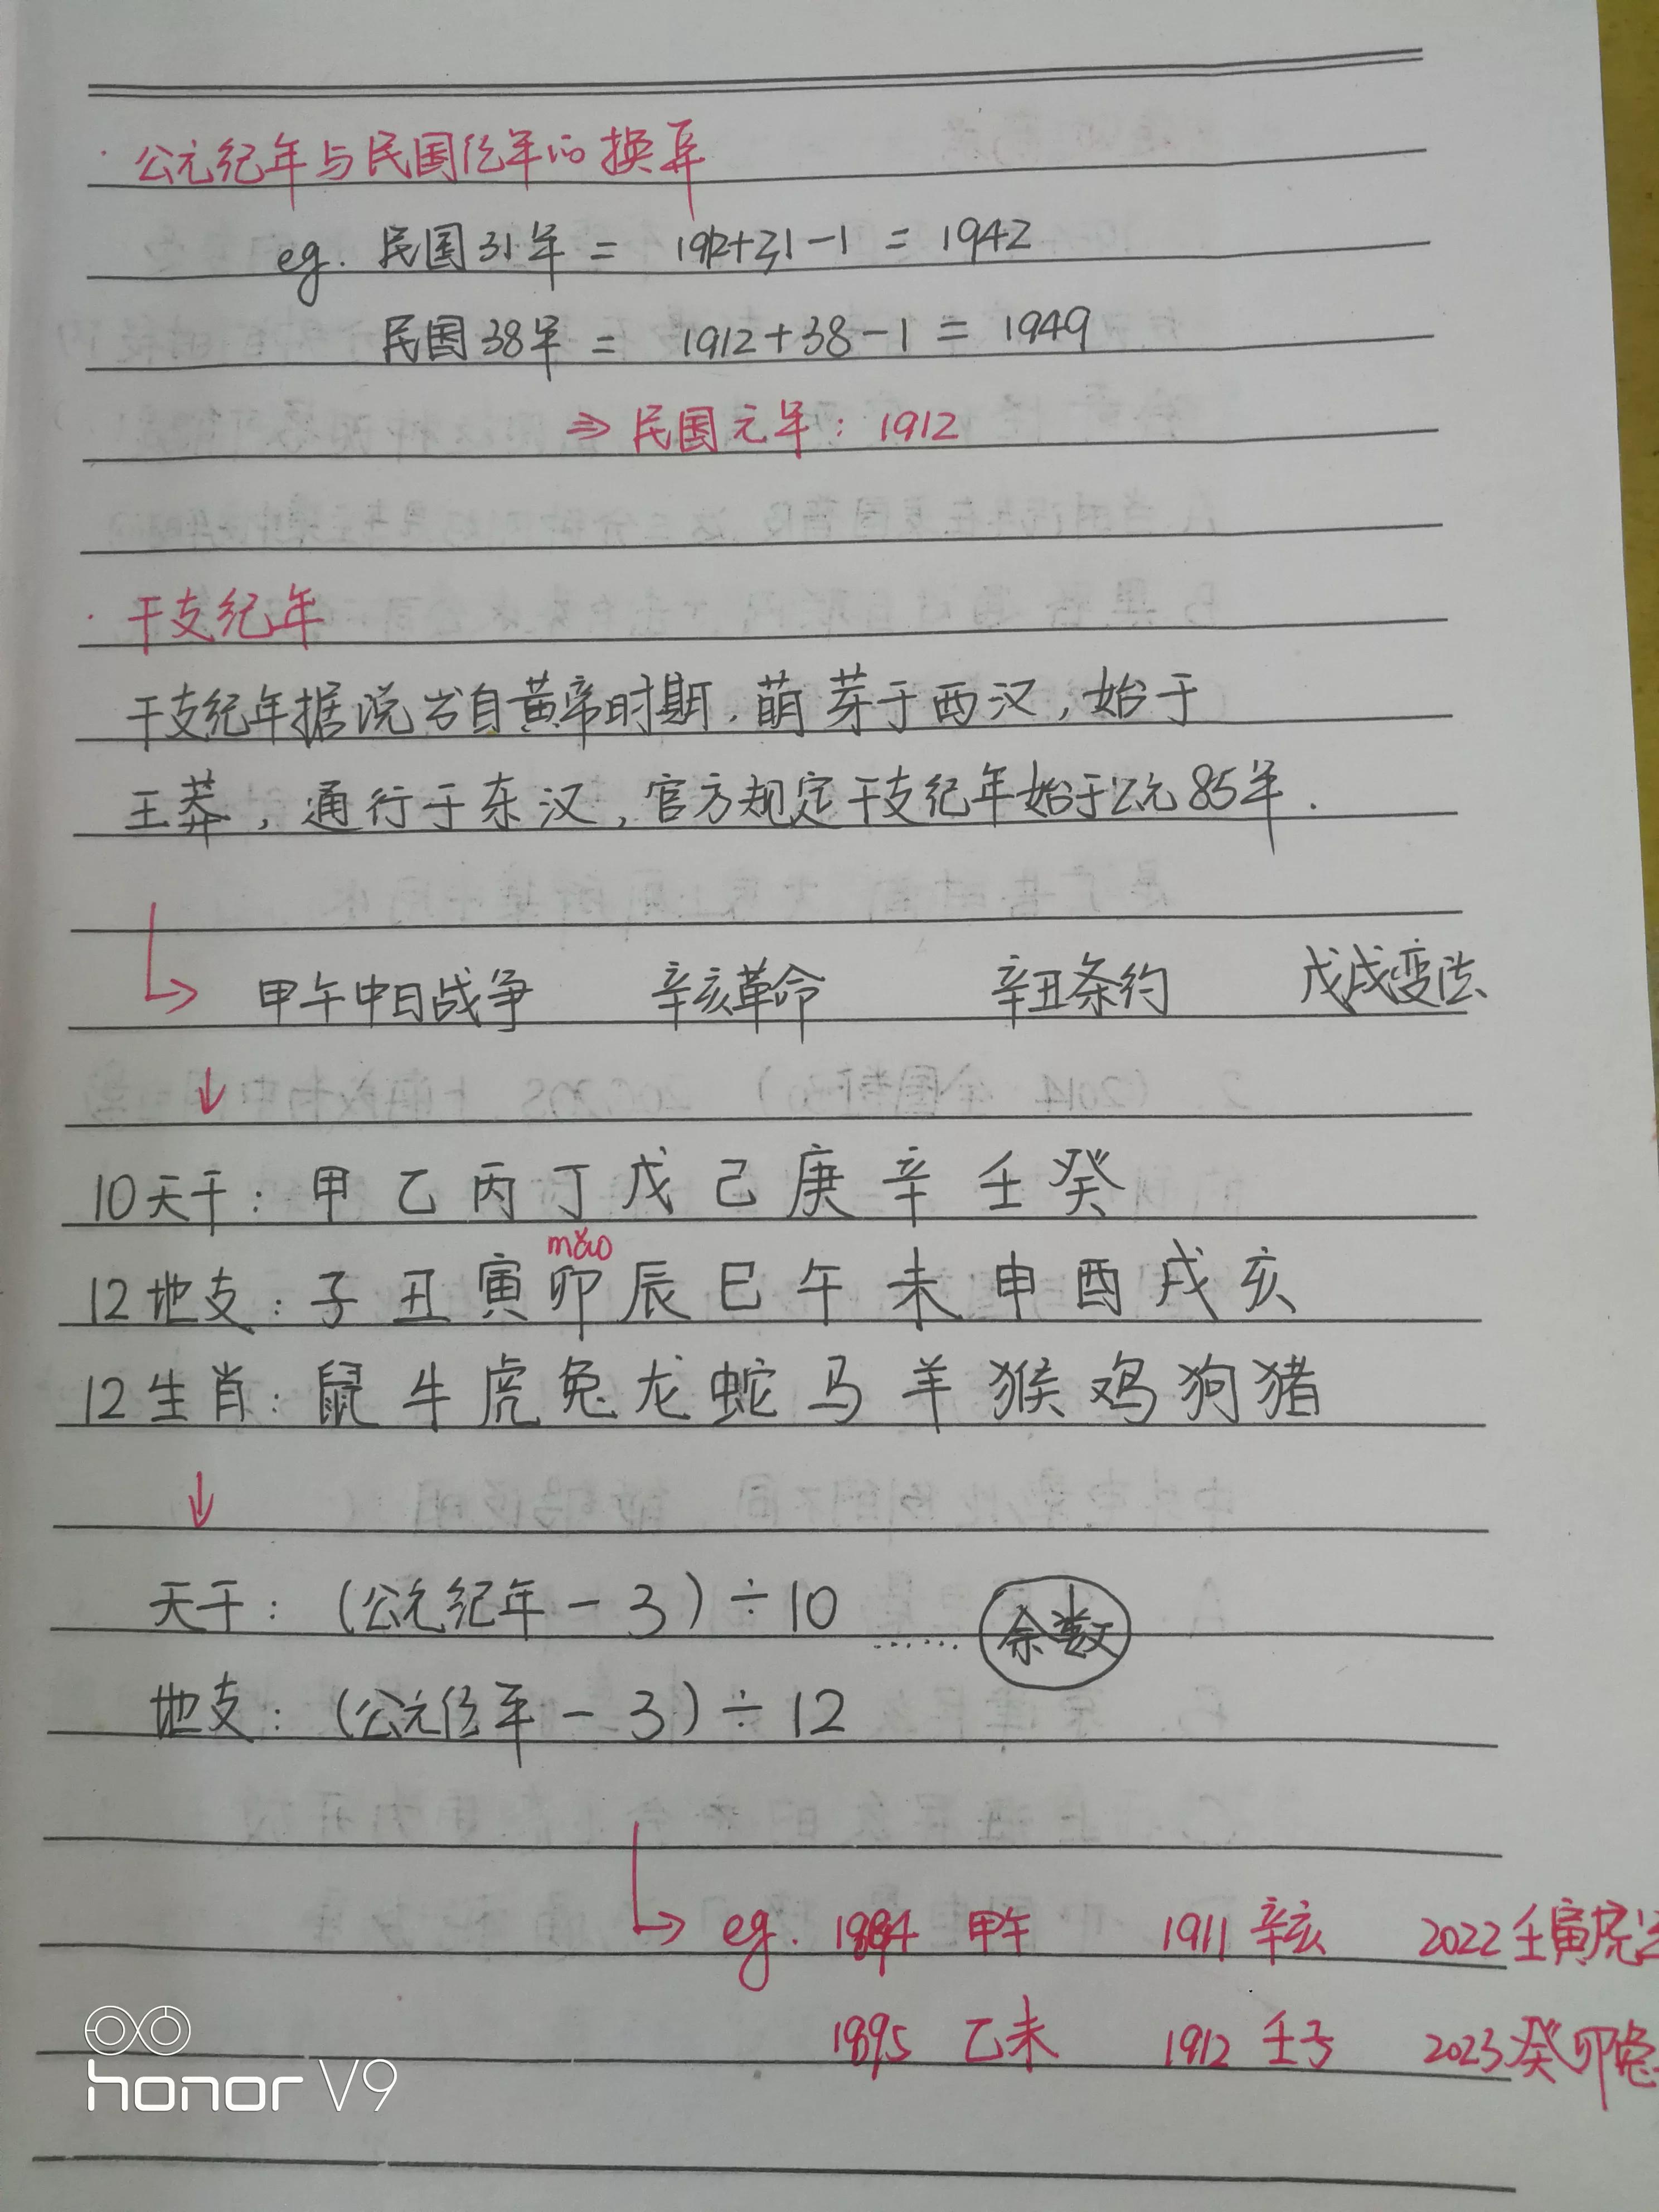 · 公元纪年与民国纪年的换算
eg. 民国31年 = 1912+31-1 = 1942
民国38年 = 1912+38-1 = 1949
⇒ 民国元年: 1912
· 干支纪年
干支纪年据说出自黄帝时期, 萌芽于西汉, 始于
王莽, 通行于东汉, 官方规定干支纪年始于公元85年.
甲午中日战争 辛亥革命 辛丑条约 戊戌变法
10天干: 甲 乙 丙 丁 戊 己 庚 辛 壬 癸
mǎo
12地支: 子 丑 寅 卯 辰 巳 午 未 申 酉 戌 亥
12生肖: 鼠 牛 虎 兔 龙 蛇 马 羊 猴 鸡 狗 猪
天干: (公元纪年 - 3) ÷ 10 …… 余数
地支: (公元纪年 - 3) ÷ 12
eg. 1894 甲午 1911 辛亥 2022 壬寅虎
1895 乙未 1912 壬子 2023 癸卯兔
honor V9